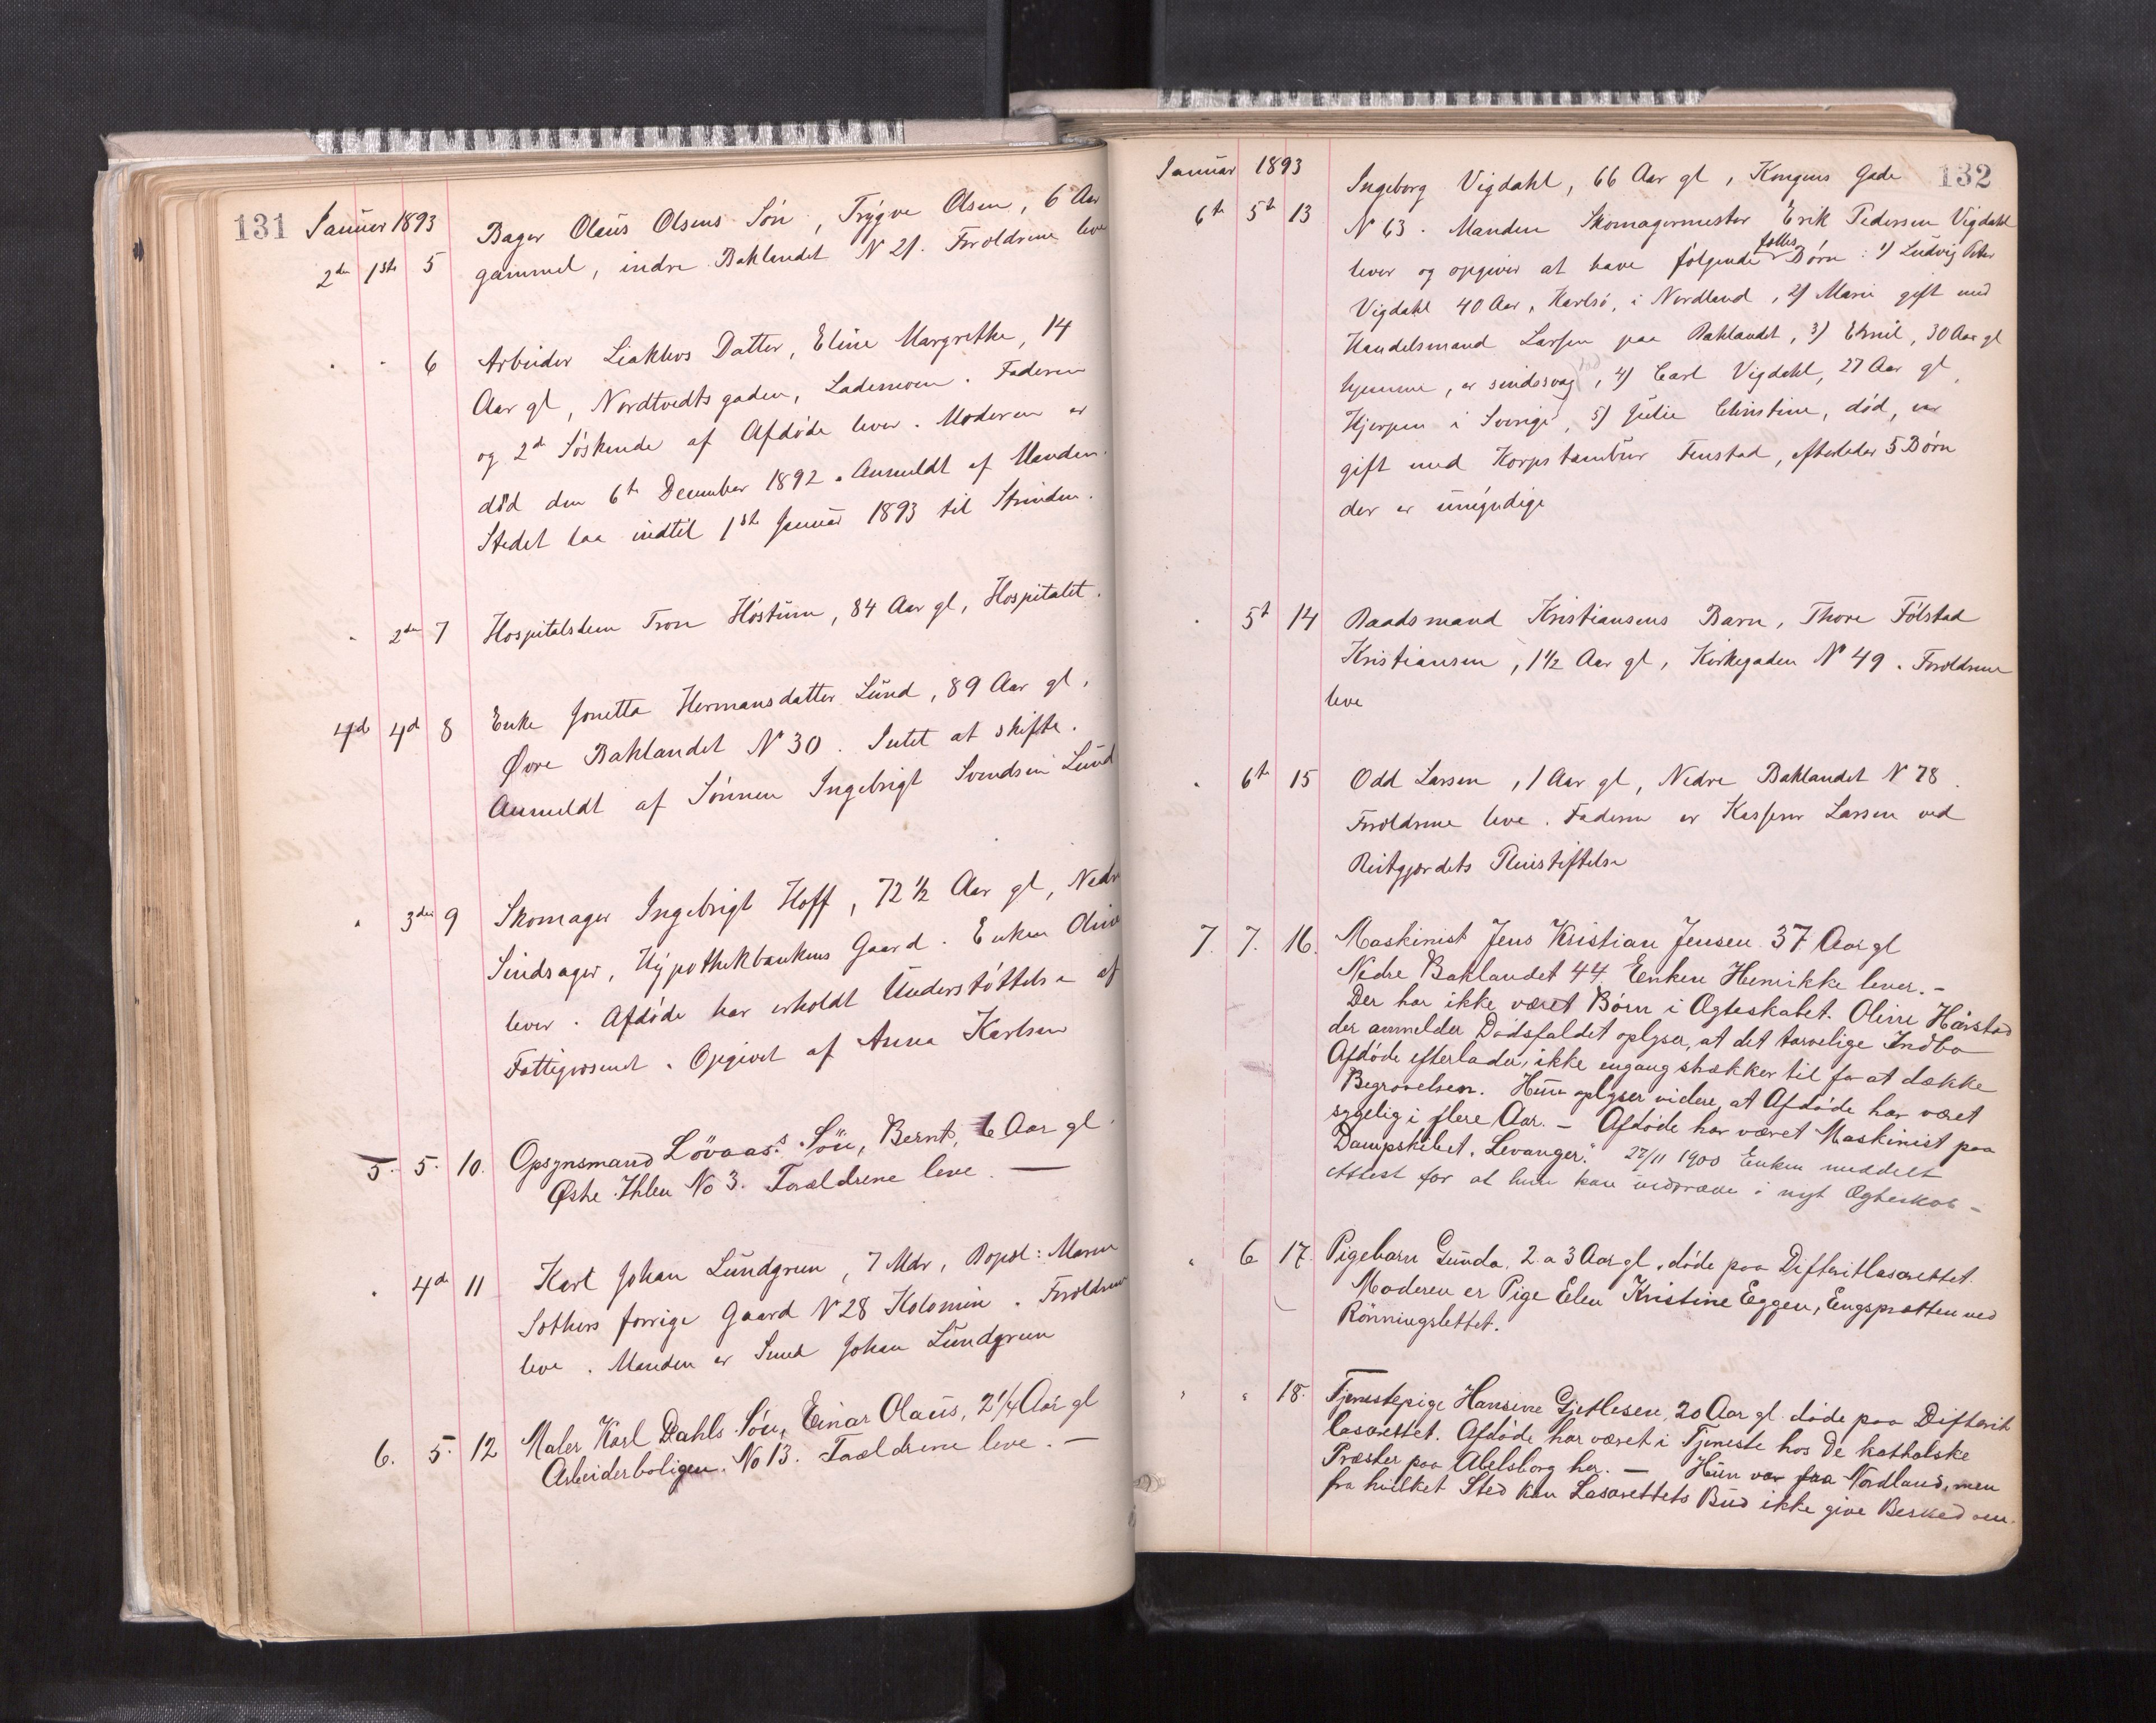 131 Januar 1893
Bager Olaus Olsens Søn, Trygve Olsen, 6 Aar
2den 1ste 5 gammel, indre Baklandet N 21. Forældrene leve
" " 6 Arbeider Liaklevs Datter, Eline Margrethe, 14
Aar gl, Nordtvedts gaden, Lademoen. Faderen
og 2de Søskende af Afdøde lever. Moderen er
død den 6te December 1892. Anmeldt af Manden.
Stedet laa indtil 1ste Januar 1893 til Strinden.
" 2den 7 Hospitalslem Tron Høstum, 84 Aar gl, Hospitalet.
4de 4de 8 Enke Jonetta Hermansdatter Lund, 89 Aar gl,
Øvre Baklandet N 30. Intet at skifte.
Anmeldt af Sønnen Ingebrigt Svendsen Lund
" 3die 9 Skomager Ingebrigt Hoff, 72 1/2 Aar gl, Nedre
Sindsager, Hypothekbankens Gaard. Enken Oline
lever. Afdøde har erholdt Understøttelse af
Fattigvæsenet. Opgivet af Anna Karlsen
5. 5. 10. Opsynsmand Løvaas's Søn, Bernt, 6 Aar gl.
Østre Ihlen No 3. Forældrene leve. —
" 4de 11 Karl Johan Lundgreen, 7 Mdr, Bopæl: Maren
Sothers forrige Gaard N 28 Kalvskin. Forældrene
leve. Manden er Smed Johan Lundgreen
6. 5. 12 Maler Karl Dahls Søn, Einar Olaus, 2 1/4 Aar gl
Arbeiderboligen. No 13. Forældrene leve. —
Januar 1893 132
Ingeborg Vigdahl, 66 Aar gl, Kongens Gade
6te 5te 13 N 63. Manden Skomagermester Erik Pedersen Vigdahl
lever og opgiver at have følgende fælles Børn: 1) Ludvig Peter
Vigdahl 40 Aar, Karlsø, i Nordland, 2) Marie gift med
Handelsmand Larsen paa Baklandet, 3) Emil, 30 Aar gl
hjemme, er sindssvag, 4) Carl Vigdahl, 27 Aar gl,
Hjerpen i Sverige, 5) Julie Christine, død, var
gift med Korpstambur Fenstad, efterlader 5 Børn
der er umyndige
" 5te 14 Baadsmand Kristiansens Barn, Thore Følstad
Kristiansen, 1 1/2 Aar gl, Kirkegaden N 49. Forældrene
leve
" 6te 15 Odd Larsen, 1 Aar gl, Nedre Baklandet N 78.
Forældrene leve. Faderen er Kasserer Larsen ved
Reitgjerdets Pleiestiftelse
7. 7. 16. Maskinist Jens Kristian Jensen 37 Aar gl
Nedre Baklandet 44. Enken Henrikke lever. -
Der har ikke været Børn i Ægteskabet. Oline Hårstad
der anmelder Dødsfaldet oplyser, at det tarvelige Indbo
Afdøde efterlader, ikke engang strækker til for at dække
Begravelsen. Hun oplyser videre, at Afdøde har været
sygelig i flere Aar. - Afdøde har været Maskinist paa
Dampskibet "Levanger". 27/11 1900 Enken meddelt
Attest for at hun kan indtræde i nyt Ægteskab -
" 6 17. Pigebarn Gunda, 2 a 3 Aar gl, døde paa Difteritlasarettet.
Moderen er Pige Elen Kristine Eggen, Engsprætten ved
Rønningslettet.
" " 18. Tjenestepige Hansine Gjetlesen, 20 Aar gl. døde paa Difterit
lasarettet. Afdøde har været i Tjeneste hos de katholske
Præster paa Abelsborg her. — Hun var fra Nordland, men
fra hvilket Sted kan Lasarettets Bud ikke give Besked om.